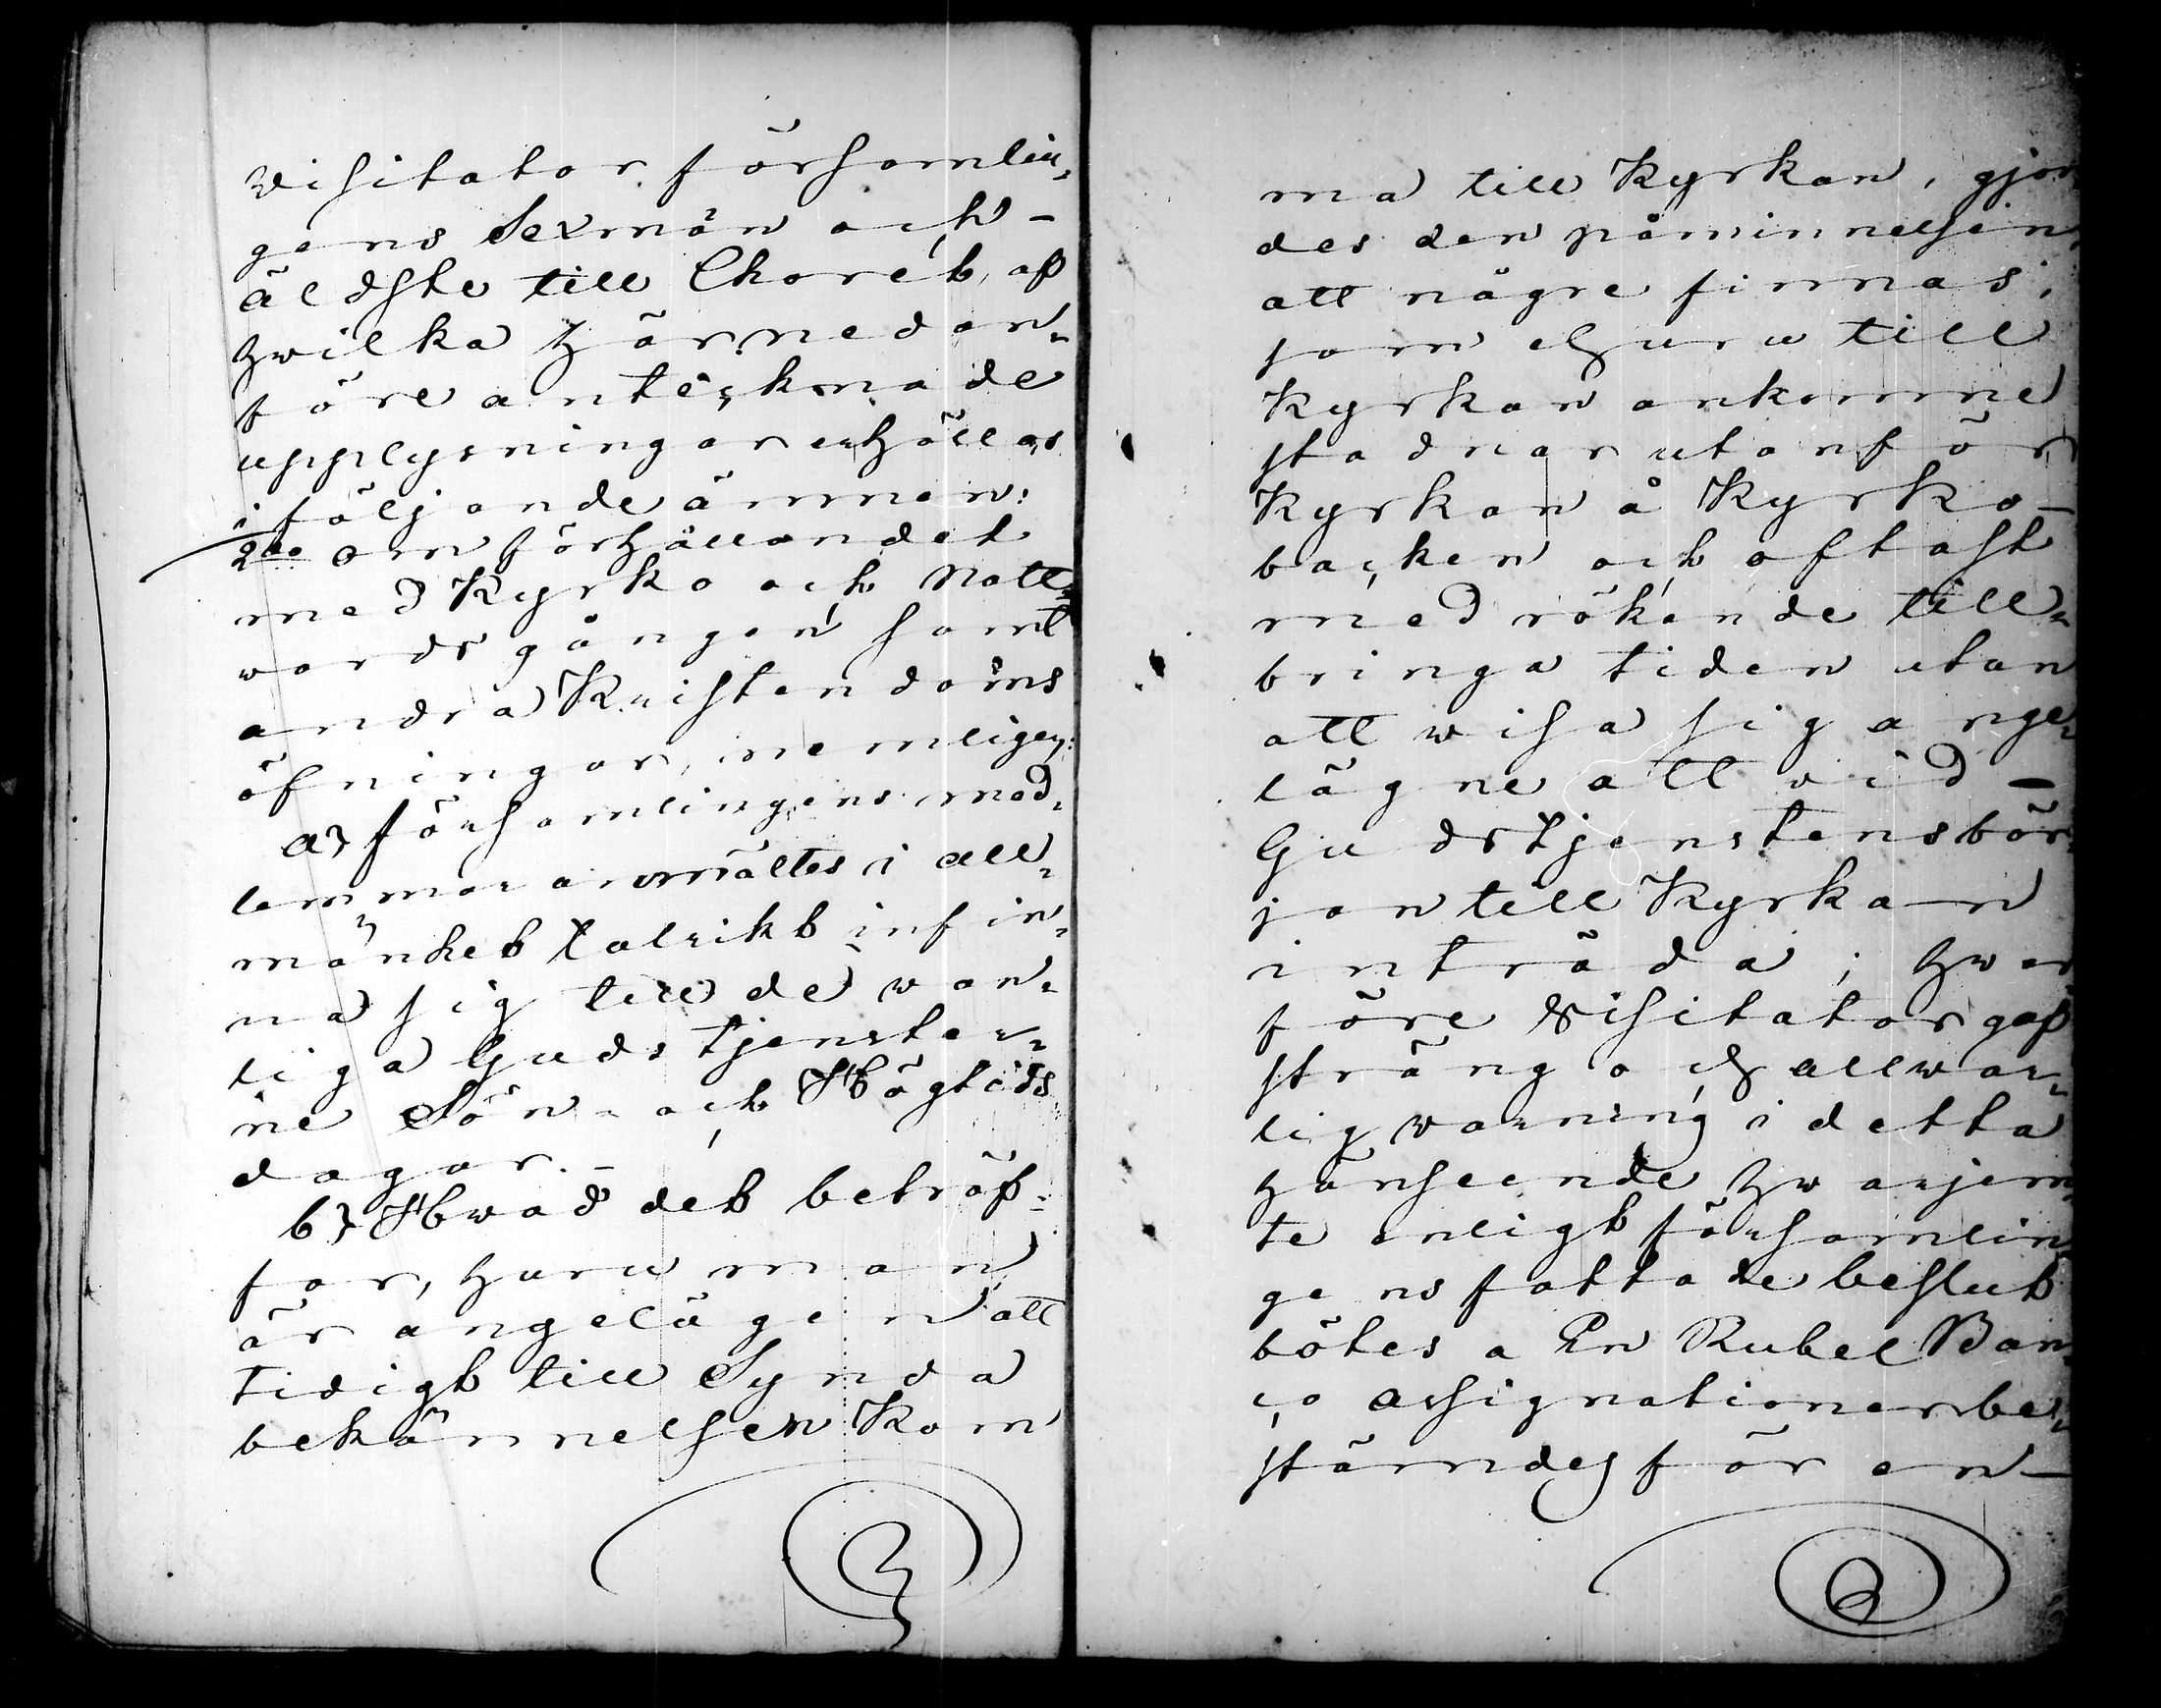 Visitator församlin-
gens Sexmän och -
äldste till Choret, af
hwilka härnedan-
före antecknade
upplysningar erhöllos
i följande ämnen:
2do om förhållandet
med Kyrko och Natt-
wards gången samt
andra Kristendoms
öfningar, nemligen:
a) församlingens med-
lemmar anmältes i all-
mänhet talrikt infin-
na sig till de wan-
liga Gudstjenster-
ne Sön- och Högtids
dagar. -
b) Hwad det beträf-
far, huru man
är angelägen att
tidigt till Synda
bekännelsen Kom
ma till Kyrkan, gjor-
des den påminnelsen,
att någre finnas,
som ehuru till
Kyrkan ankomne
stadnar utanför
Kyrkan å Kyrko-
backen och oftast
med rökande till-
bringa tiden utan
att wisa sig ange-
lägne att vid -
Gudstjenstens bör-
jan till Kyrkan
inträda; hwar-
före Visitator gaf
sträng och allwar-
lig warning i detta
hänseende hwarjem-
te enligt församlin-
gens fattade beslut
bötes a En Rubel Ban-
co Assignationer be-
stämdes för en -